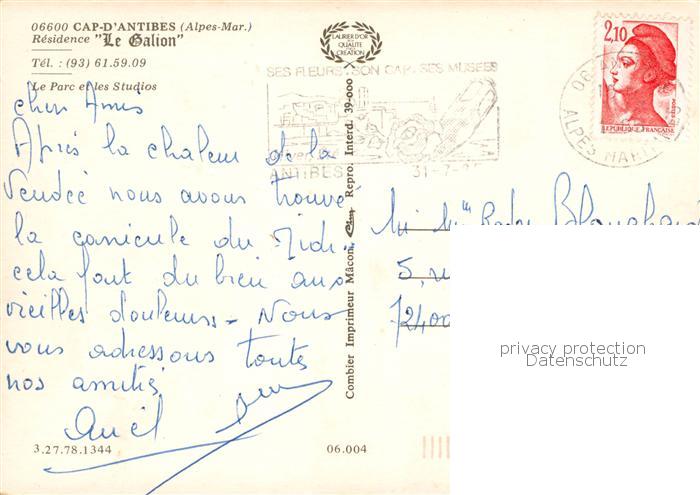 06600 CAP-D'ANTIBES (Alpes-Mar.)
Résidence "Le Galion"
Tél. : (93) 61.59.09
Le Parc et les Studios
LAURIER D'OR
de la
QUALITÉ
de la
CRÉATION
SES FLEURS. SON CAP. SES MUSEES
ANTIBES
31-7-
2,10
REPUBLIQUE FRANÇAISE
06
ALPES MARIT
Combier Imprimeur Mâcon. Repro. Interd. 39-000
chers Amis
Après la chaleur de la
Vendée nous avons trouvé
la canicule du Midi
cela fait du bien aux
vieilles douleurs - Nous
vous adressons toutes
nos amitiés
Mr Mme Blanchard
5, ru
72400
3.27.78.1344
06.004
privacy protection
Datenschutz